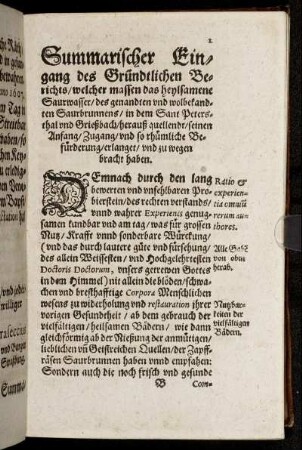 Summarischer Ein-
gang des Gründtlichen Be-
richts/ welcher massen das heylsamene
Saurwasser/ des genandten vnd wolbekand-
ten Saurbrunnens/ in dem Sant Peters-
thal vnd Grießbach/ herauß quellendt/ seinen
Anfang/ Zugang/ vnd so rhümliche Be-
fürderung/ erlanget/ vnd zu wegen
bracht haben.
DEmnach durch den lang
bewerten vnd vnfehlbaren Pro-
bierstein/ des rechten verstands/
vnnd wahrer Experientz genug-
samen kundbar vnd am tag/ was für grossen
Nutz/ Krafft vnnd sonderbare Würckung/
(vnd das durch lautere güte vnd fürsehung/
des allein Weissesten/ vnd Hochgelehrtesten
Doctoris Doctorum, vnsers getrewen Gottes
in dem Himmel) nit allein die blöden/ schwa-
chen vnd bresthafftige Corpora Menschlichen
wesens zu widerholung vnd restauration ihrer
vorigen Gesundheit/ ab dem gebrauch der
vielfältigen/ heilsamen Bädern/ wie dann
gleichförmig ab der Niessung der anmütigen/
lieblichen vn Geistreichen Quellen/ der Zapff-
räsen Saurbrunnen haben vnnd empfahen:
Sondern auch die noch frisch vnd gesunde
B Com-
Ratio &
experien-
tia omniū
rerum au-
thores.
Alle Gabē
von oben
herab.
Nutzbar-
keiten der
vielfältigen
Bädern.